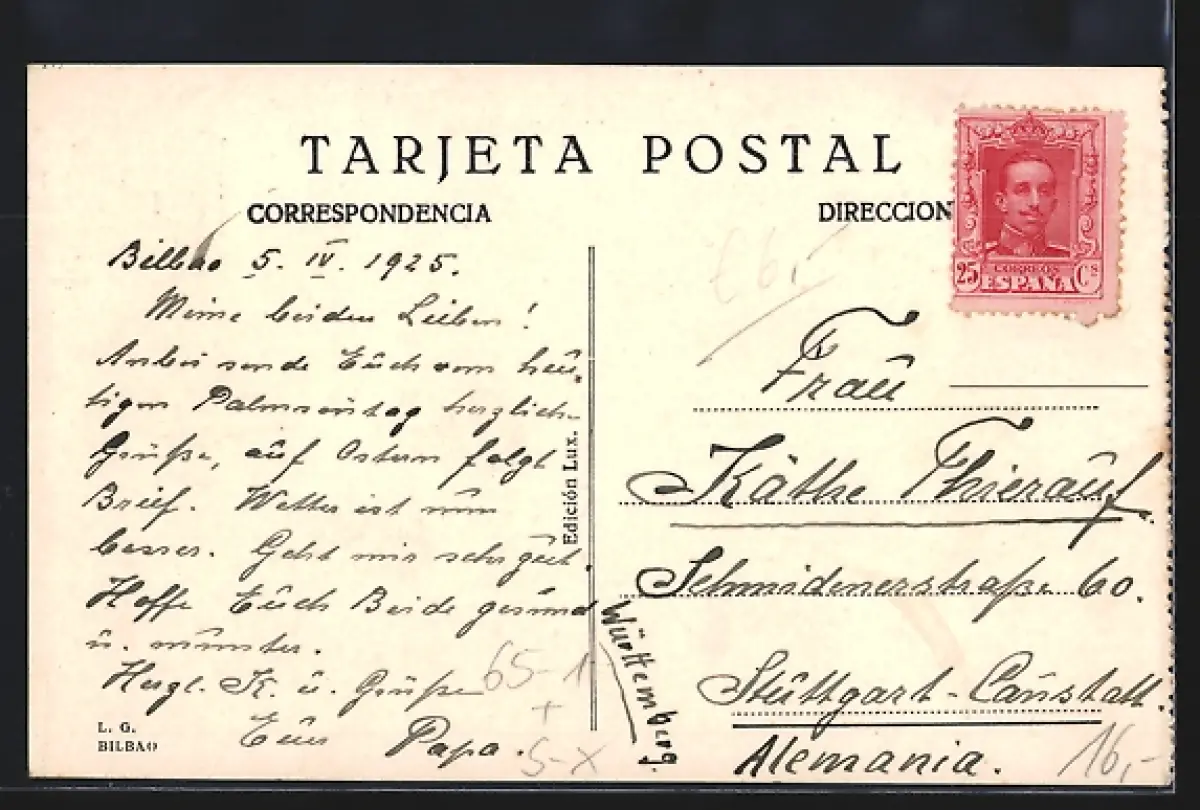 TARJETA POSTAL
CORRESPONDENCIA
DIRECCION
25 CORREOS Cs
ESPAÑA
Bilbao 5. IV. 1925.
Meine beiden Lieben!
Anbei sende Euch vom heu-
tigen Palmsontag herzliche
Grüße, auf Ostern folgt
Brief. Wetter ist nun
besser. Geht mir sehr gut.
Hoffe Euch Beide gesund
u. munter.
Herzl. K. u. Grüße
Euer Papa.
L. G.
BILBAO
Edición Lux.
Frau
Käthe Thierauf
Schmidenerstraße 60.
Stuttgart-Canstatt.
Württemberg.
Alemania.
65-1
+
S-X
16,-